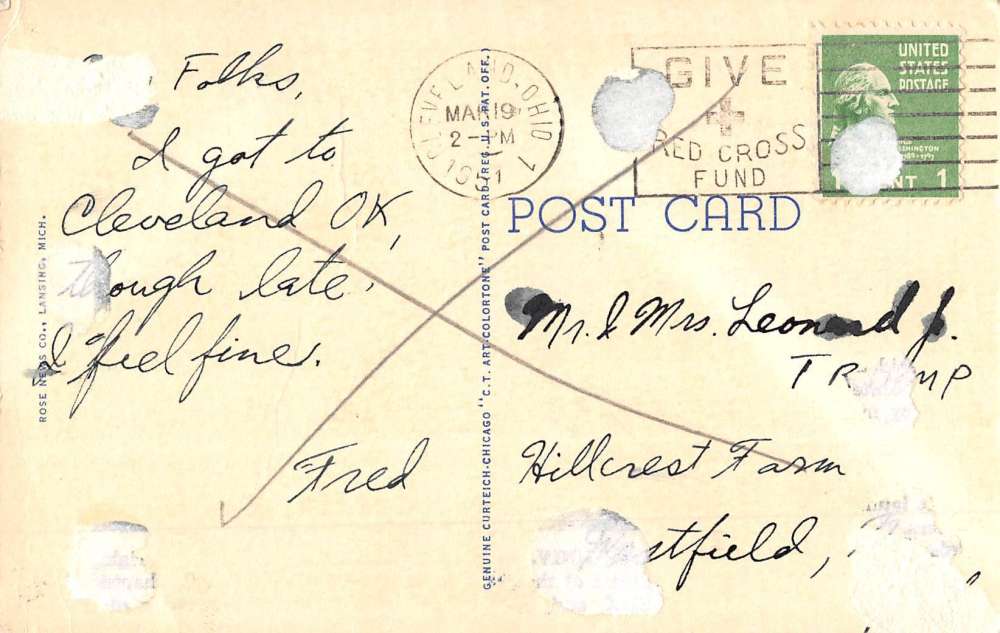 Folks,
I got to
Cleveland OK,
though late.
I feel fine.
Fred
ROSE NEWS CO., LANSING, MICH.
GENUINE CURTEICH-CHICAGO "C.T. ART-COLORTONE" POST CARD (REG. U.S. PAT. OFF.)
CLEVELAND, OHIO 1
MAR 19
2-PM
1951
GIVE
RED CROSS
FUND
UNITED
STATES
POSTAGE
1
POST CARD
Mr. & Mrs. Leonard J.
Hillcrest Farm